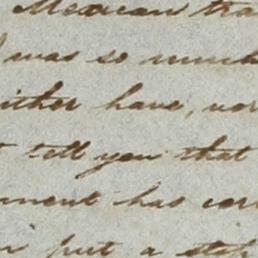 Mexican tra
I was so much
either have, nor
t tell you that
ment has cer
n put a stop